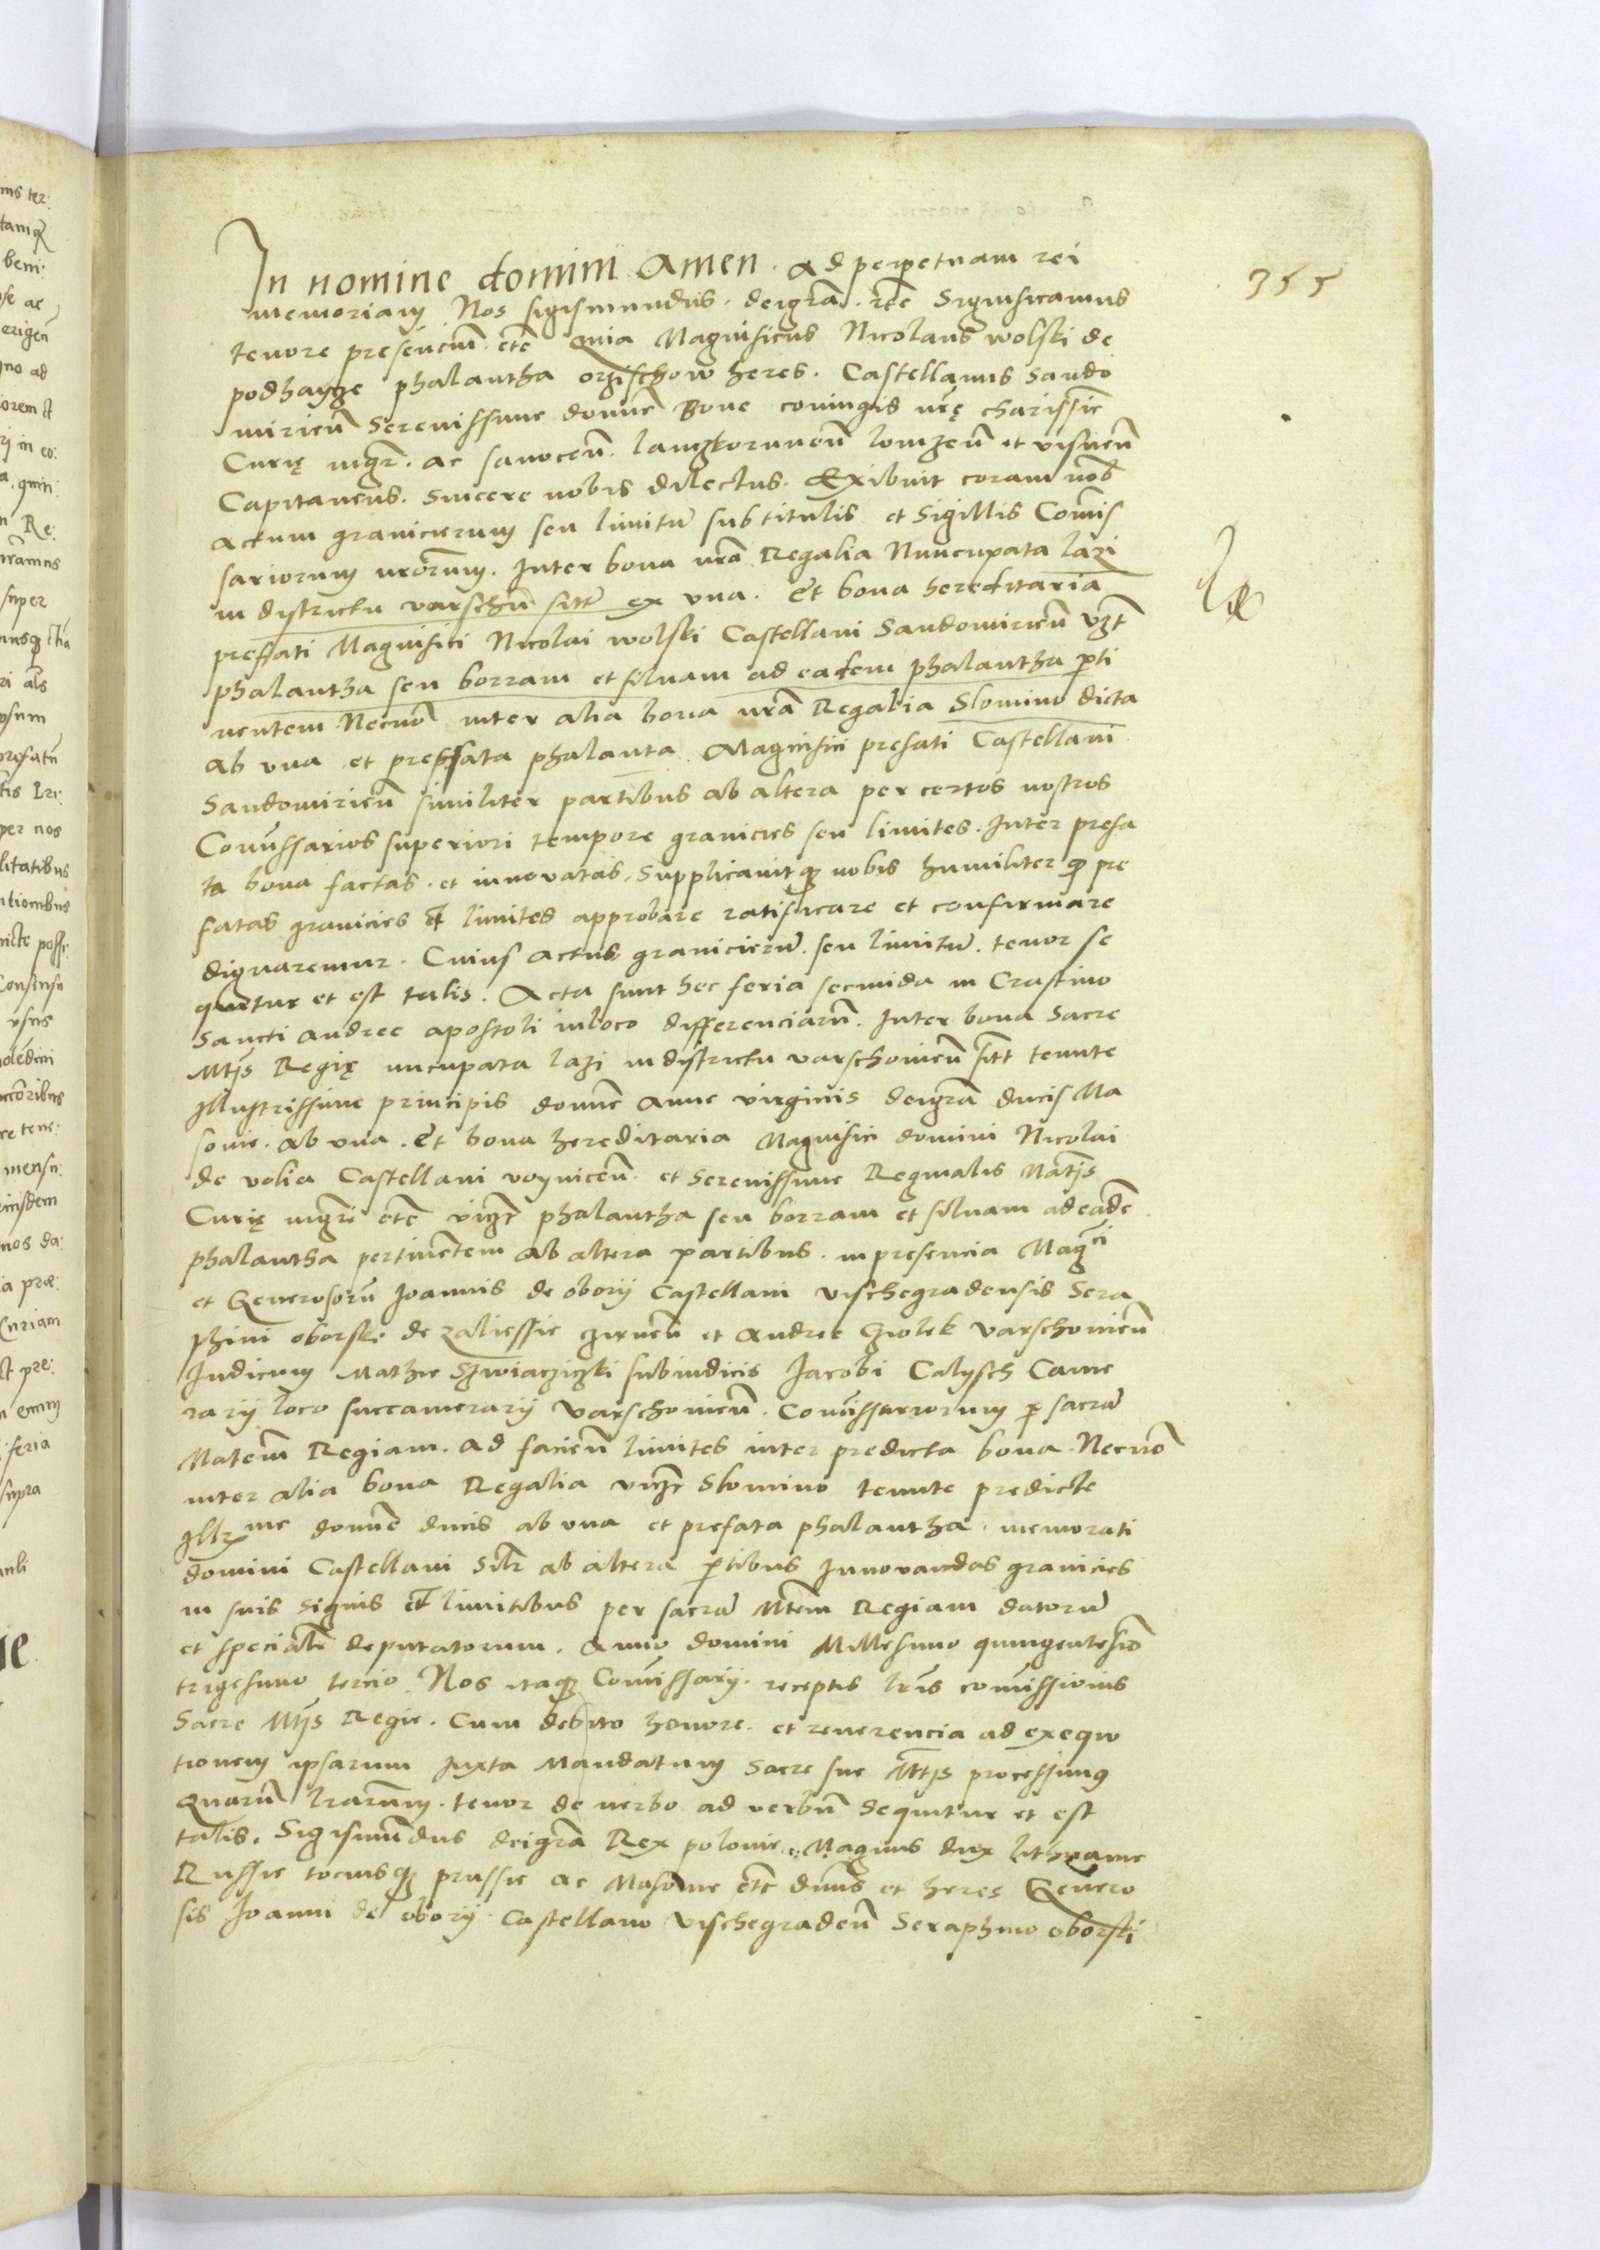 355
In nomine domini Amen. Ad perpetuam rei
memoriam Nos sigismundus. deigrā. etc̄ Significamus
tenore presenciū. etc̄ quia Magnificus Nicolaus wolski de
podhayge phalantha orzischow heres. Castellanus Sando
miricn̄ Serenissime domine Bone coniugis nrę charissie
Curię mgr̄. ac sanocen̄. lomzen̄ et visnen̄
Capitaneus. Sincere nobis dilectus. Exibuit coram nob̄
actum granicierum seu limitū sub titulis et Sigillis Comis
sariorum nrorum. Inter bona nrā Regalia Nuncupata lazi
in districtu varschen̄ sitt̄ ex vna. Et bona hereditaria
preffati Magnifici Nicolai wolski Castellani Sandomiricn̄ vzt̄
phalantha seu borram et siluam ad eadem phalantha pti
nentem Necnō inter alia bona nrā Regalia Slomino dicta
ab vna et preffata phalanta Magnifici prefati Castellani
Sandomiricn̄ similiter partibus ab altera per certos nostros
Comissarios superiori tempore granicies seu limites. Inter prefa
ta bona factas. et innouatas. Supplicauitq nobis humiliter q̄ pre
fatas granicies et limites approbare ratificare et confirmare
dignaremur. Cuius actus granicierū seu limitū. tenor se
quitur et est talis. Acta sunt hec feria secunda in Crastino
Sancti andree apostoli inloco differenciarū. Inter bona Sacre
Mtis Regię nucupata lazi in districtu varschouien̄ sitt tenute
Illustrissime principis domne Anne virginis deigrā ducis Ma
souie. ab vna. Et bona hereditaria Magnifici domini Nicolai
de volia Castellani voynicen̄. et Serenissime Reginalis Matis
Curię mgrī etc̄ vizt̄ phalantha seu borram et siluam ad eadē
phalantha pertinētem ab altera partibus. in presencia Mag:ci
et Generosorū Joannis de obory Castellani vischegradensis Sera
phini oborski de zaliessie czirnen̄ et Andree Cziolek varschouien̄
Judicum Mathie Szwiaczicki subiudicis Jacobi Calysch Came
rarij loco succamerarij varschouien̄. Comissariorum p sacrā
Matem Regiam. ad faciēn̄ limites inter predicta bona. Necnō
inter alia bona Regalia vizt̄ Slomino tenute predicte
Illr̄me domne ducis ab vna et prefata phalantha. memorati
domini Castellani Silr̄ ab altera ptibus Innouandas granicies
in suis signis et limitibus per sacrā Mtem Regiam datorū
et specialr̄ deputatorum. Anno domini Millesimo quingentesiō
trigesimo tercio. Nos itaq Comissarij. receptis lr̄is comissionis
Sacre Mtis Regie. Cum debito honore. et reuerencia ad exequu
tionem ipsarum Juxta Mandatum Sacre sue Mtis processimus
Quarū lrarum. tenor de uerbo ad verbū Sequitur et est
talis. Sigismūdus deigrā Rex polonie. Magnus dux lithuanie
Russie tociusq prussie ac Masouie etc̄ dn̄us et heres Genero
sis Joanni de obory Castellano vischegraden̄ Seraphino oborski